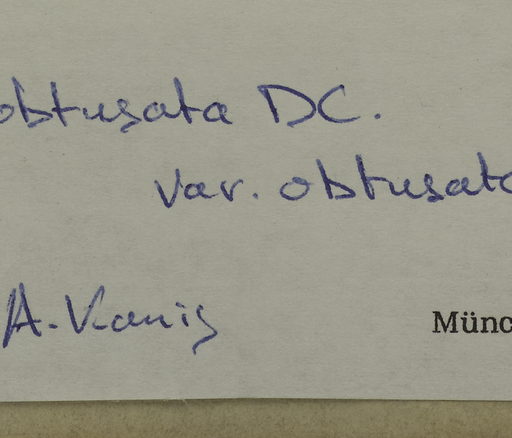 obtusata DC.
var. obtusata
A. Kanis
Münc